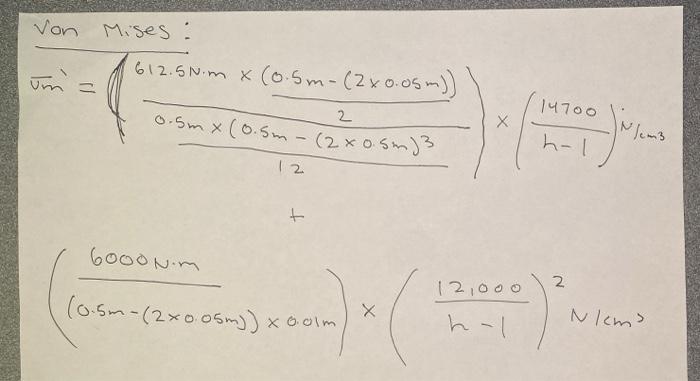 Von Mises:
σm' = ((612.5N.m × (0.5m-(2×0.05m))/2)/(0.5m×(0.5m-(2×0.5m)^3/12)) × (14700/h-1) N/cm3
+
(6000N.m/(0.5m-(2×0.05m))×0.01m) × (12,000/h-1)^2 N/cm3